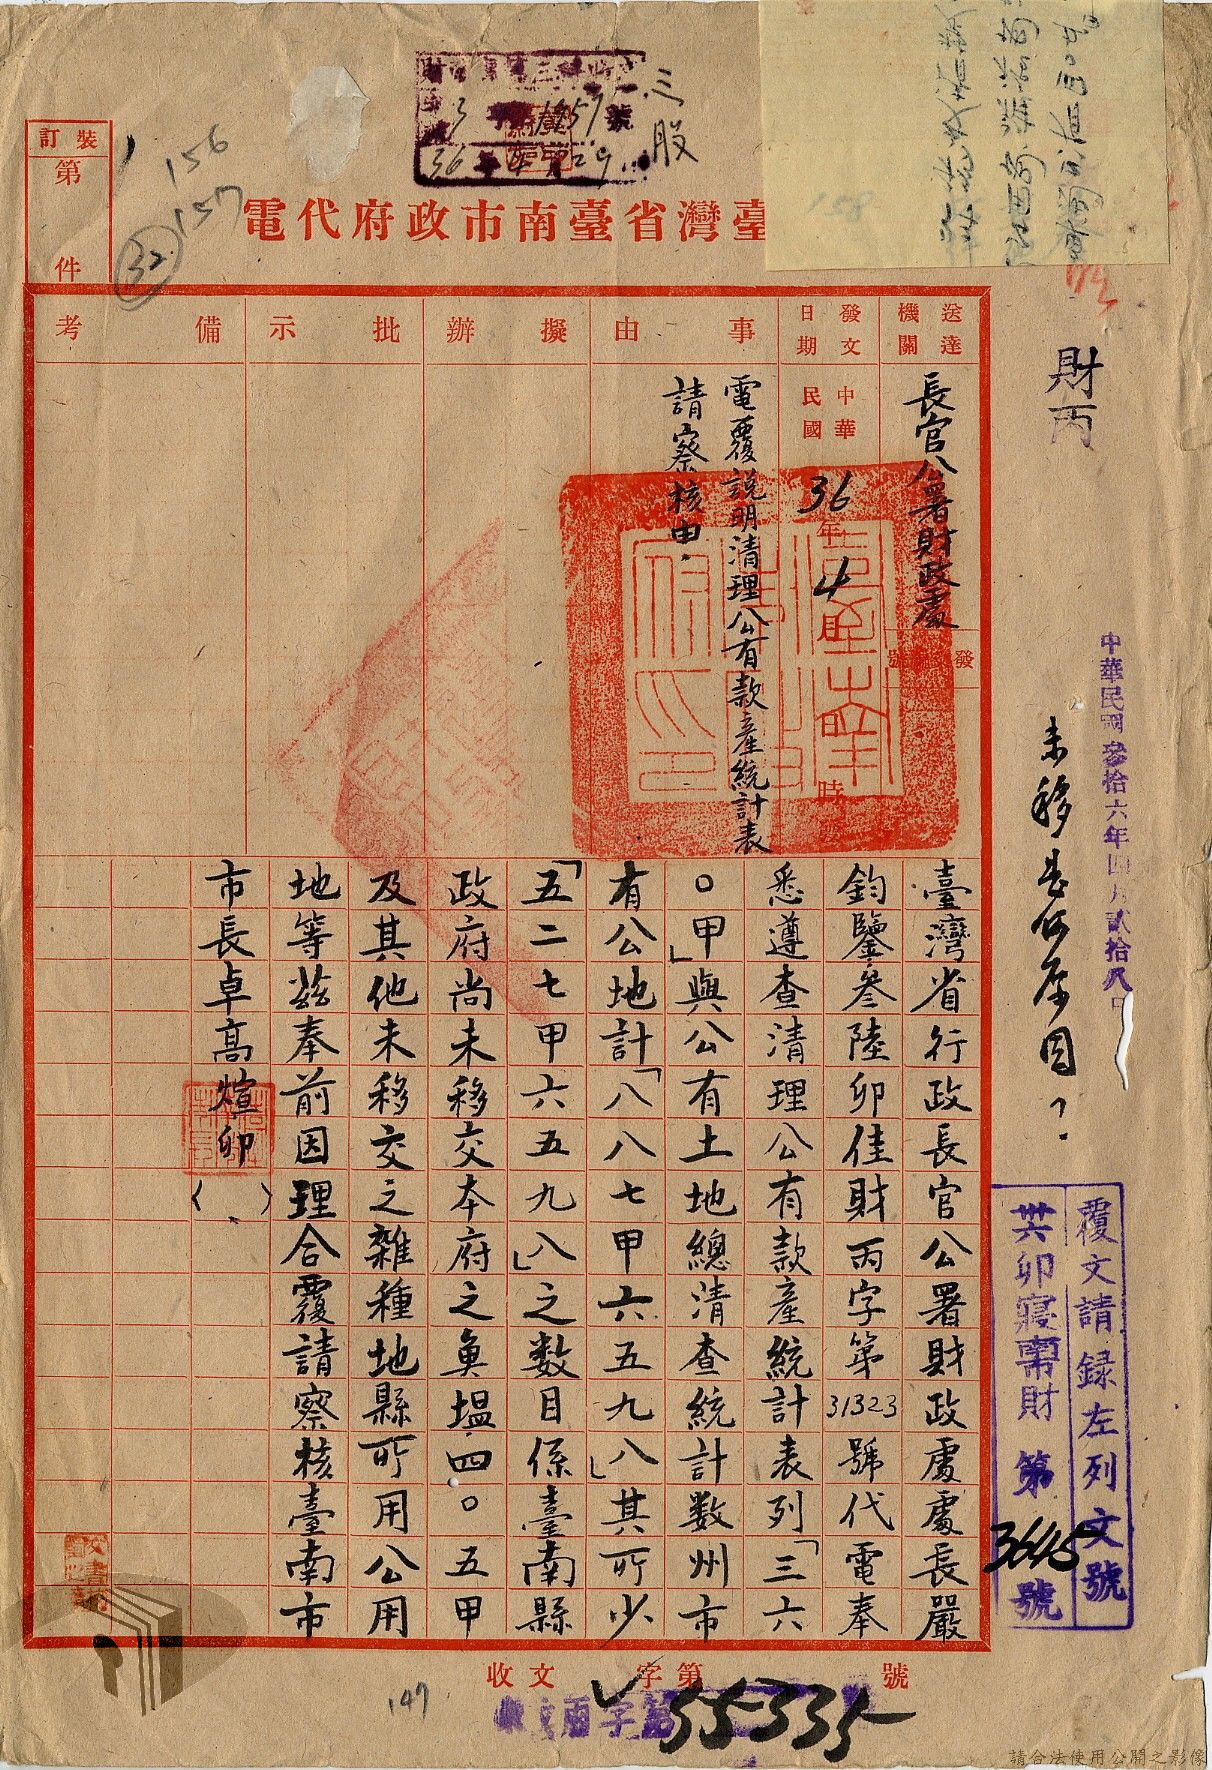 三股
36
29
臺灣省臺南市政府代電
裝訂
第
件
156
157
32
158
送達機關
長官公署財政處
發文日期
中華民國
36年
4
時
事由
電覆說明清理公有款產統計表
請察核由
擬辦
批示
備考
臺灣省行政長官公署財政處處長嚴
鈞鑒叄陸卯佳財丙字第31323號代電奉
悉遵查清理公有款產統計表列「三六
〇甲」與公有土地總清查統計數州市
有公地計「八八七甲六五九八」其所少
「五二七甲六五九八」之數目係臺南縣
政府尚未移交本府之魚塭四〇五甲
及其他未移交之雜種地縣所用公用
地等茲奉前因理合覆請察核臺南市
市長卓高煊卯( )
財丙
未移是何原因?
中華民國參拾六年四月貳拾八日
覆文請録左列文號
卅六卯寢南財 第3645號
收文 字第 號
收文丙字第
55335
147
請合法使用公開之影像